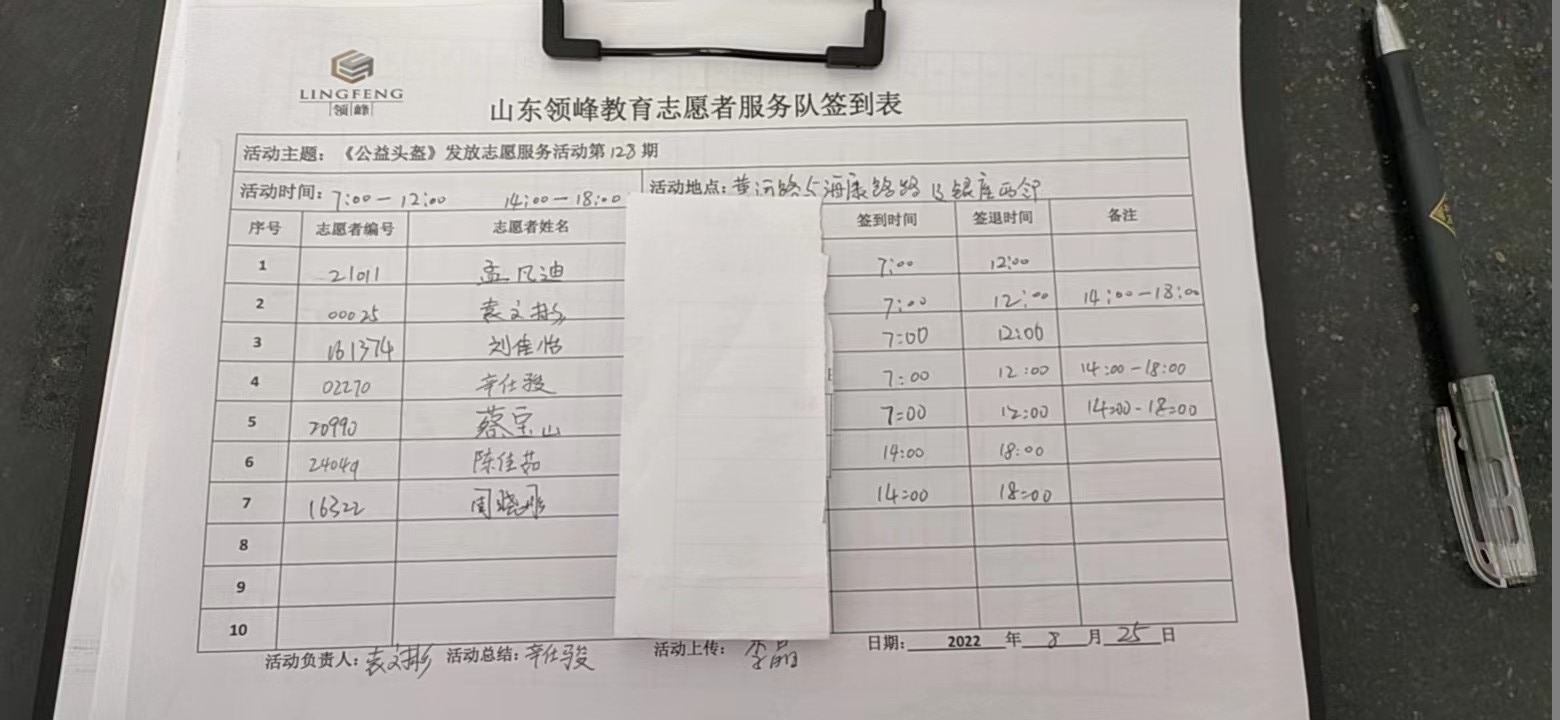 LINGFENG
领峰
山东领峰教育志愿者服务队签到表
活动主题：《公益头盔》发放志愿服务活动第128期
活动时间：7:00—12:00 14:00—18:00 活动地点：黄河路与海康路路 银座西邻
序号 志愿者编号 志愿者姓名 签到时间 签退时间 备注
1 21011 孟凡迪 7:00 12:00
2 00025 袁文彬 7:00 12:00 14:00—18:00
3 161374 刘佳怡 7:00 12:00
4 02270 辛仕骏 7:00 12:00 14:00—18:00
5 20990 蔡宝山 7:00 12:00 14:00-18:00
6 24049 陈佳茹 14:00 18:00
7 16322 周晓彤 14:00 18:00
8
9
10
活动负责人：袁文彬 活动总结：辛仕骏 活动上传：李晶 日期： 2022 年 8 月 25 日